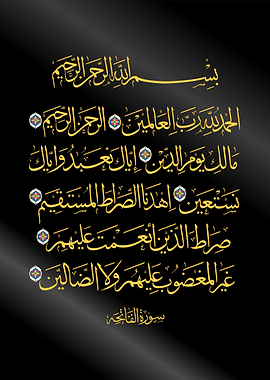 بسم الله الرحمن الرحيم
الحمد لله رب العالمين الرحمن الرحيم
مالك يوم الدين إياك نعبد وإياك
نستعين اهدنا الصراط المستقيم
صراط الذين أنعمت عليهم
غير المغضوب عليهم ولا الضالين
سورة الفاتحة